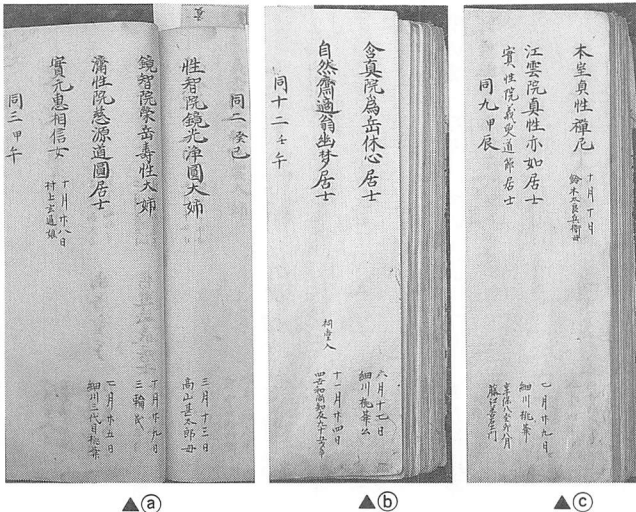 同二癸巳
性智院鏡光淨圓大姉
三月十三日
高山甚太郎母
鏡智院榮岳壽性大姉
十月廿九日
三輪氏
濟性院慈源道圓居士
七月廿五日
細川三代目桃葉
實元惠相信女
十月廿八日
村上玄通娘
同三甲午
▲ⓐ
含真院為岳休心居士
六月十七日
細川桃葉公
自然齋適翁幽梦居士
祠堂入
十一月廿四日
同十二壬午
▲ⓑ
本室貞性禪尼
十月十日
鈴木太良兵衛母
江雲院真性亦如居士
七月廿九日
細川桃葉
實性院義叟道節居士
享保八癸卯八月
藤江善左エ門
同九甲辰
▲ⓒ